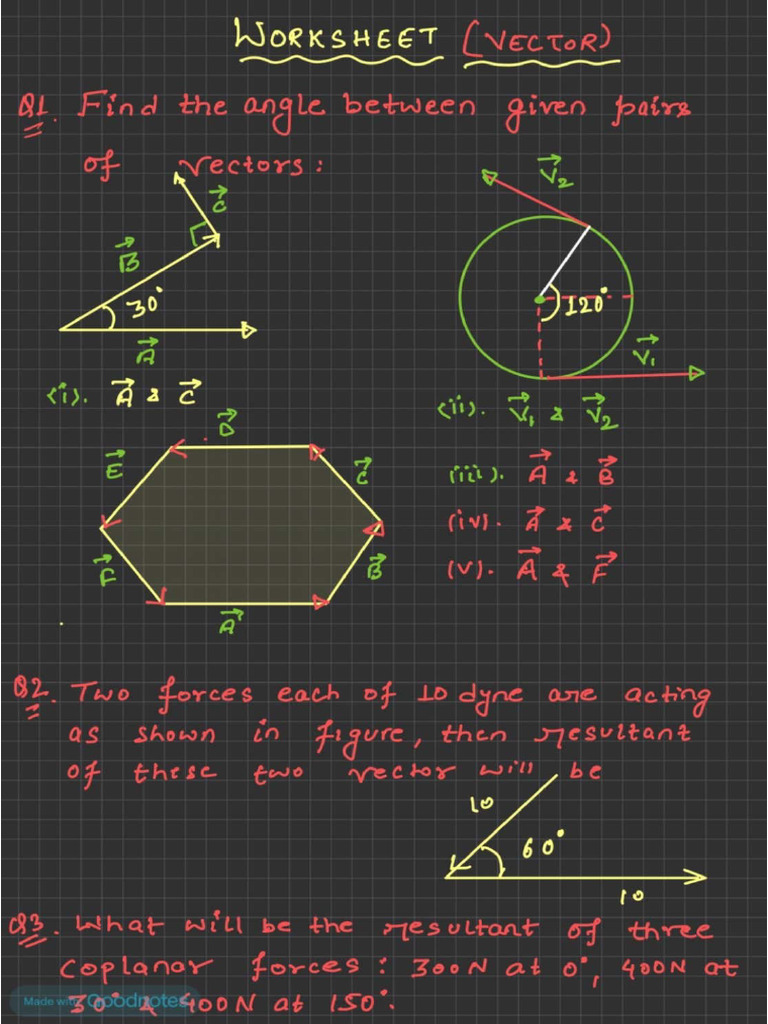 WORKSHEET (VECTOR)
Q1. Find the angle between given pairs
of vectors:
C
B
30°
A
(i). A & C
V2
120°
V1
(ii). V1 & V2
D
E
C
F
B
A
(iii). A & B
(iv). A & C
(v). A & F
Q2. Two forces each of 10 dyne are acting
as shown in figure, then resultant
of these two vector will be
10
60°
10
Q3. What will be the resultant of three
coplanar forces: 300N at 0°, 400N at
30° & 400N at 150°.
Made with Goodnotes